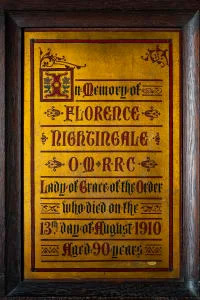 In Memory of
FLORENCE
NIGHTINGALE
O·M·R·R·C
Lady of Grace of the Order
who died on the
13th day of August 1910
Aged 90 years